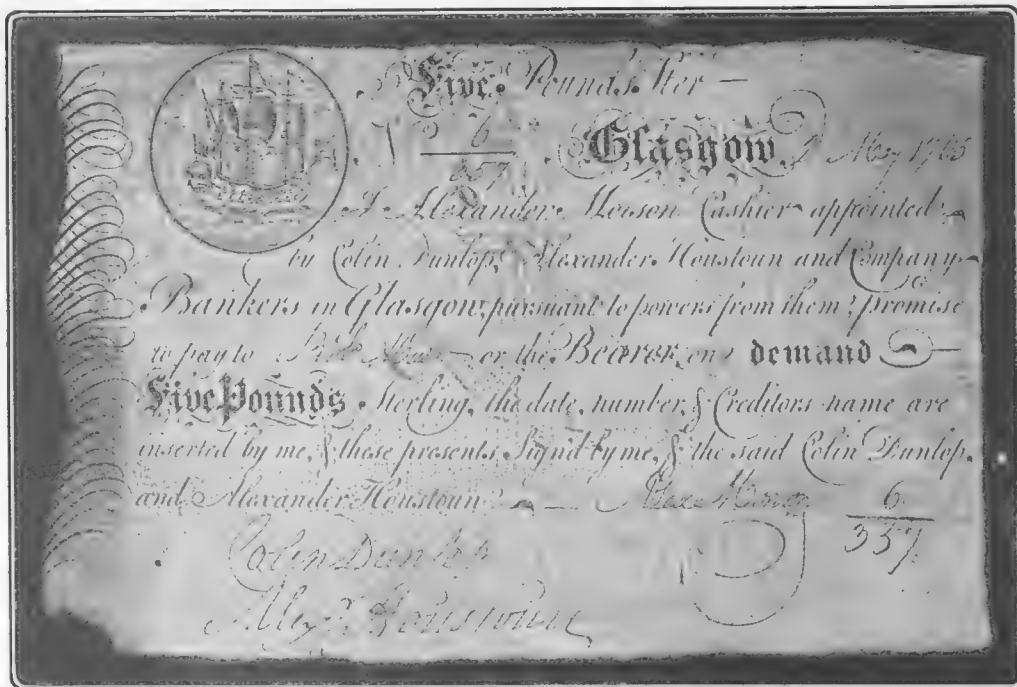 Five Pounds Ster
N° 6/357. Glasgow 2 May 1763
I Alexander Morson Cashier appointed
by Colin Dunlop, Alexander Houstoun and Company
Bankers in Glasgow, pursuant to powers from them, promise
to pay to or the Bearer, on demand
Five Pounds Sterling, the date, number, & Creditors name are
inserted by me, & these presents Sign'd by me, & the said Colin Dunlop,
and Alexander Houstoun. Alex. Morson 6/357
Colin Dunlop
Alexr. Houstoun